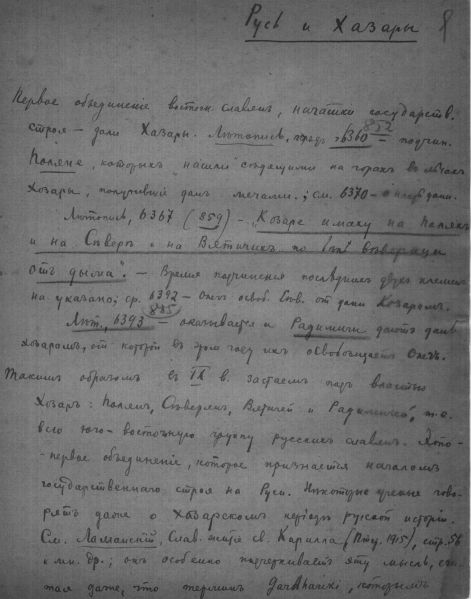 Русь и Хазары 8
Первое объединеніе восточн. славян, начатки государств.
строя – дали Хазары. Лѣтопись, предъ 6360 = подчин. 852
Поляне, которых нашли сѣдящими на горах в лѣсах
Хозары, получившіе дань мечами.; см. 6370 – о дани.
Лѣтопись, 6367 (859) – „Козаре имаху на Полянѣх
и на Сѣверѣ и на Вятичих по бѣлѣ вѣверици
отъ дыма". – Время подчиненія последних двух племен
не указано; ср. 6392 – Олег освоб. Сѣв. от дани Козаром.
Лѣт., 6393 – оказывается и Радимичи дают дань 885
хозарам, от которой в этом году их освобождает Олегъ.
Таким образом в IX в. застаем под властью
Хозар: Полян, Сѣверян, Вятичей и Радимичей, т.е.
всю юго-восточную группу русских славян. Это –
– первое объединеніе, которое признается началом
государственнаго строя на Руси. Некоторые ученые гово-
рят даже о Хазарском періодѣ русской исторіи.
См. Ламанскій, Слав. житіе св. Кирилла (Птг. 1915), стр. 56
и мн. др.; он особенно подчеркивает эту мысль, счи-
тая даже, что термин, которым